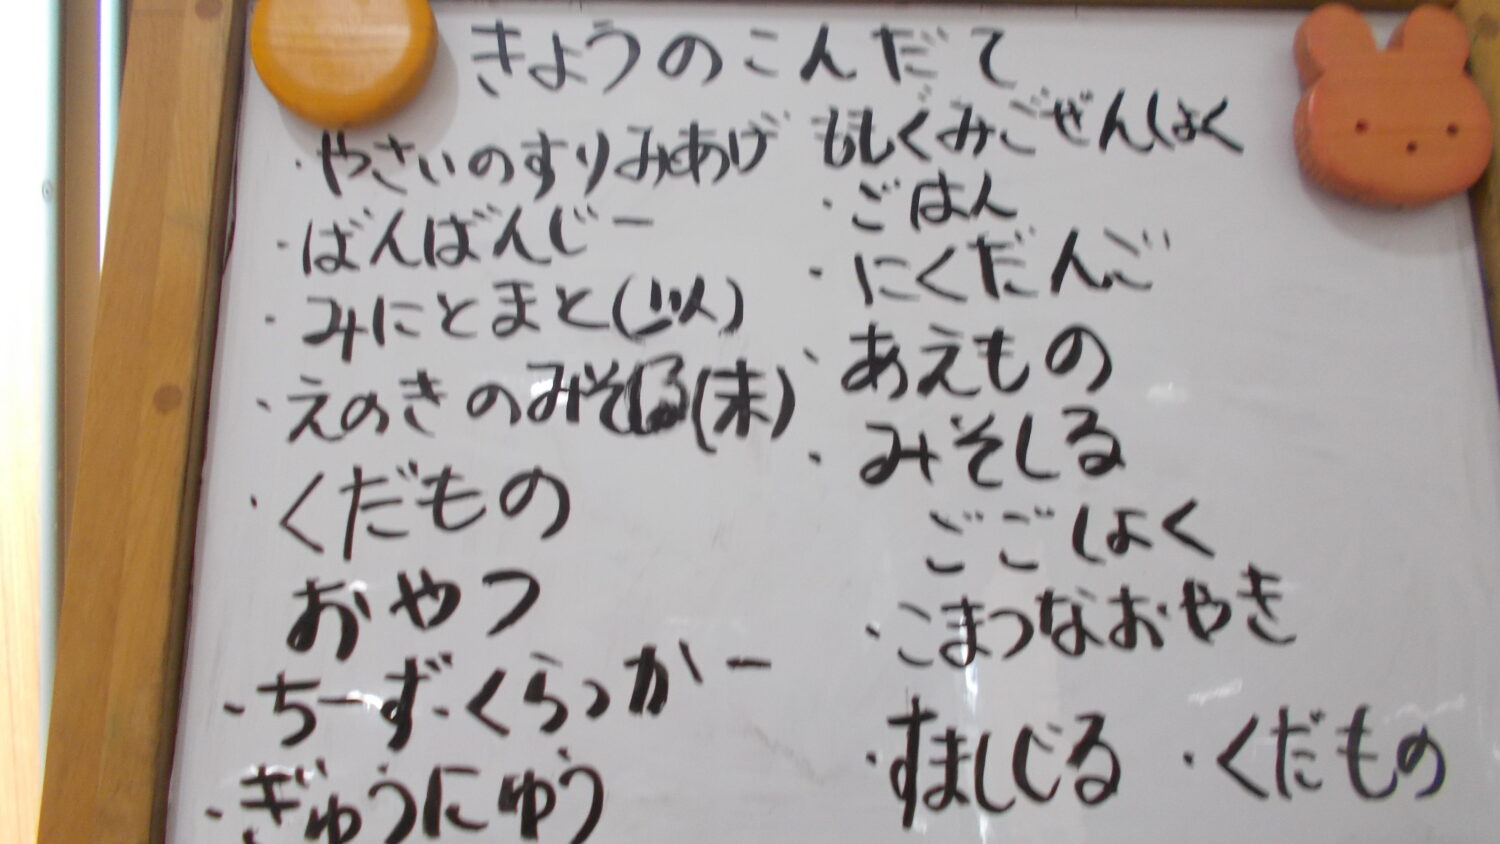 きょうのこんだて
・やさいのすりみあげ
・ばんばんじー
・みにとまと(以)
・えのきのみそしる(未)
・くだもの
おやつ
・ちーず・くらっかー
・ぎゅうにゅう
もしぐみごぜんしょく
・ごはん
・にくだんご
・あえもの
・みそしる
ごごしょく
・こまつなおやき
・すましじる ・くだもの